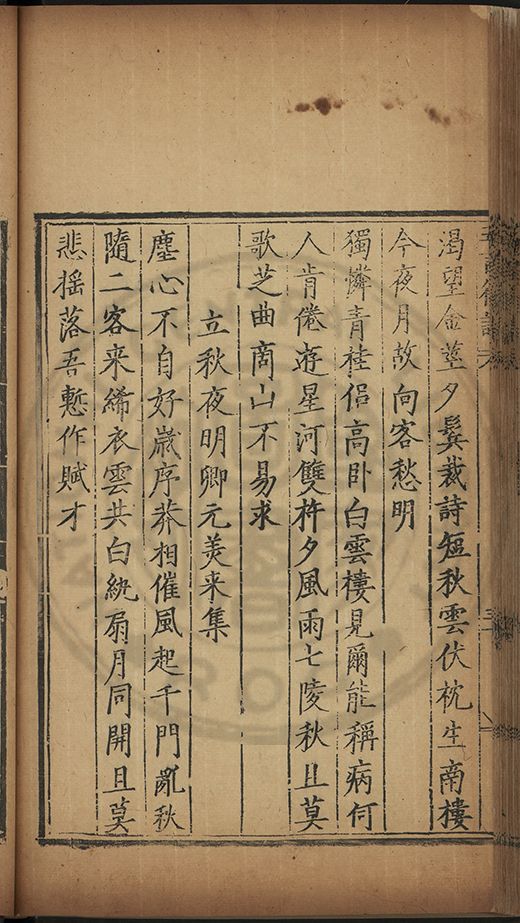 渴望金莖夕鬂裁詩短秋雲伏枕生南樓
今夜月故向客愁明
獨憐青桂侣高卧白雲樓見爾能稱病何
人肯倦遊星河雙杵夕風雨七陵秋且莫
歌芝曲商山不易求
立秋夜明卿元美来集
塵心不自好歳序莽相催風起千門亂秋
隨二客来絺衣雲共白紈扇月同開且莫
悲揺落吾慙作賦才